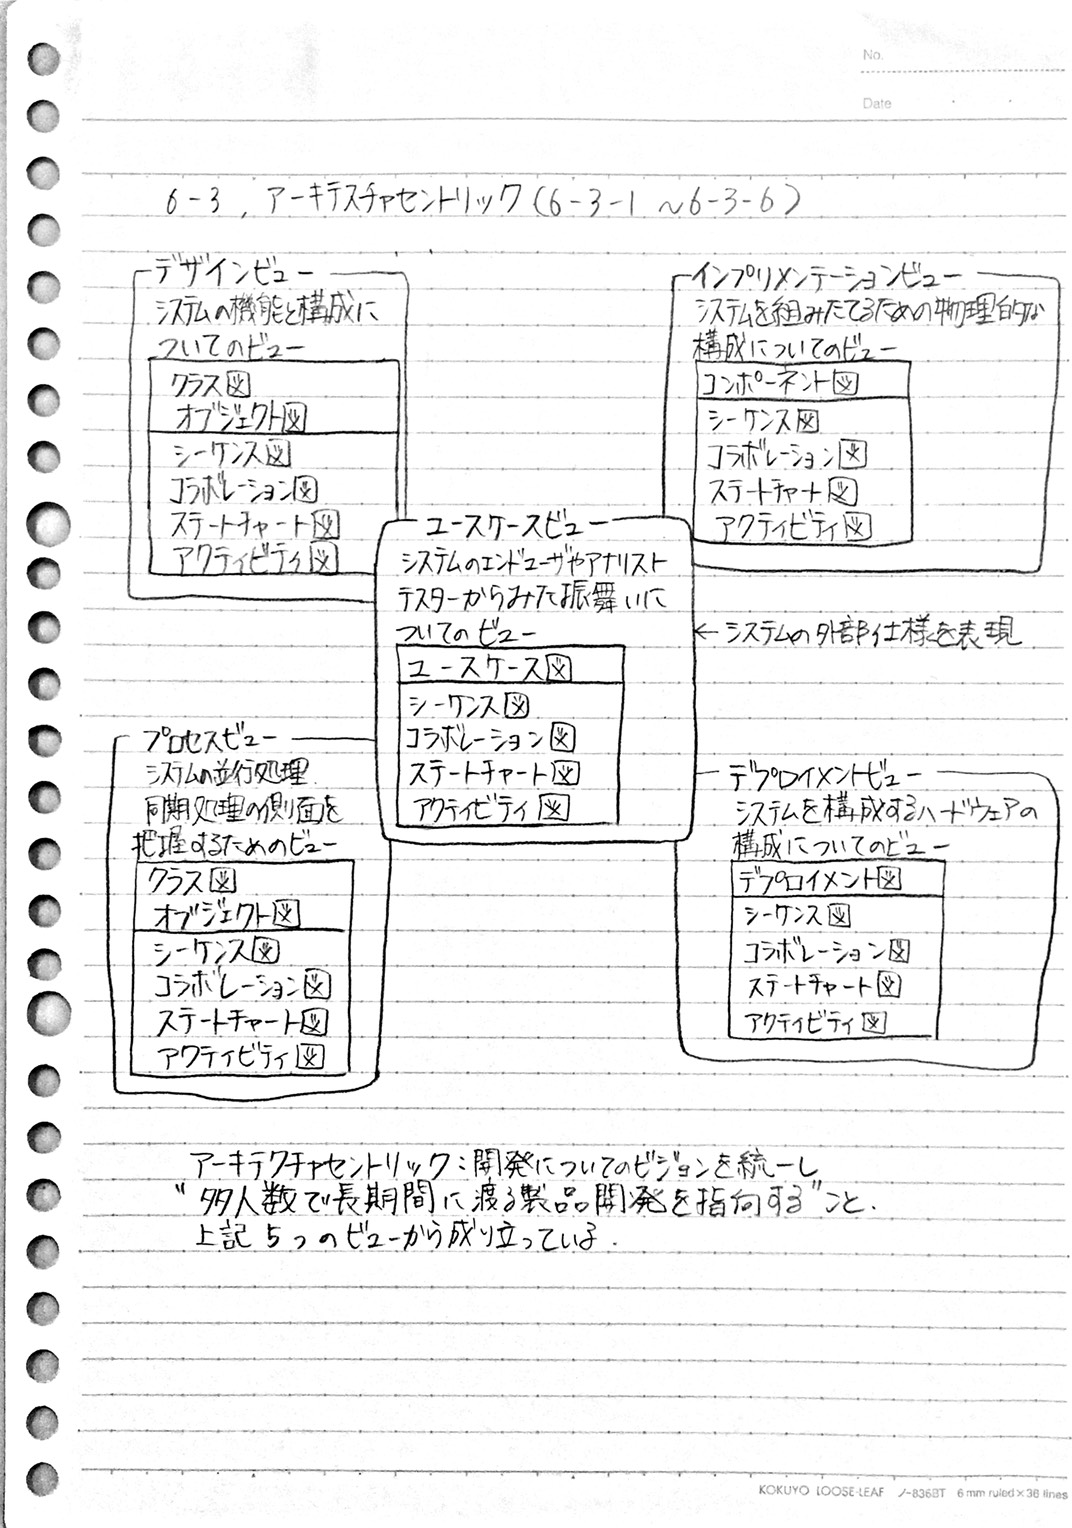 No.
Date
6-3. アーキテスチャセントリック(6-3-1 ～6-3-6)
デザインビュー
システムの機能と構成に
ついてのビュー
クラス図
オブジェクト図
シーケンス図
コラボレーション図
ステートチャート図
アクティビティ図
インプリメンテーションビュー
システムを組みたてるための物理的な
構成についてのビュー
コンポーネント図
シーケンス図
コラボレーション図
ステートチャート図
アクティビティ図
ユースケースビュー
システムのエンドユーザやアナリスト
テスターからみた振舞いに
ついてのビュー
ユースケース図
シーケンス図
コラボレーション図
ステートチャート図
アクティビティ図
←システムの外部仕様を表現
プロセスビュー
システムの並行処理
同期処理の側面を
把握するためのビュー
クラス図
オブジェクト図
シーケンス図
コラボレーション図
ステートチャート図
アクティビティ図
デプロイメントビュー
システムを構成するハードウェアの
構成についてのビュー
デプロイメント図
シーケンス図
コラボレーション図
ステートチャート図
アクティビティ図
アーキテクチャセントリック:開発についてのビジョンを統一し
"多人数で長期間に渡る製品開発を指向する"こと.
上記5つのビューから成り立っている.
KOKUYO LOOSE-LEAF ノ-836BT 6mm ruled×36 lines